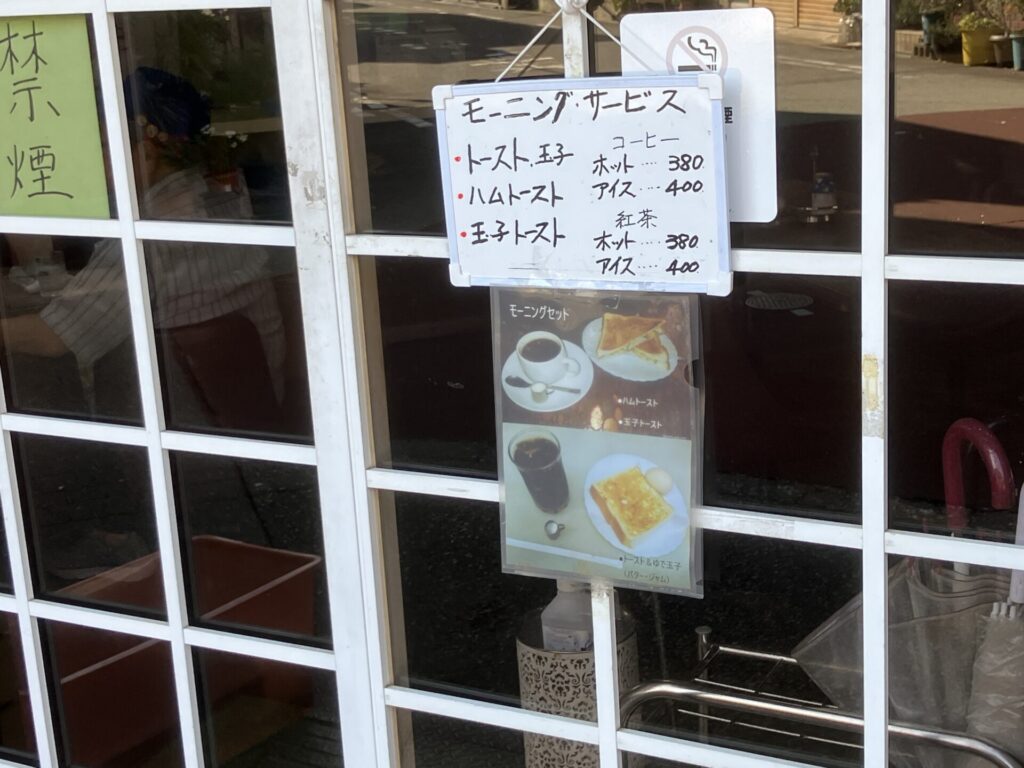 禁
煙
モーニング・サービス
・トースト、玉子
・ハムトースト
・玉子トースト
コーヒー
ホット‥‥380
アイス‥‥400
紅茶
ホット‥‥380
アイス‥‥400
煙
モーニングセット
●ハムトースト
●玉子トースト
●トースト&ゆで玉子
(バター・ジャム)